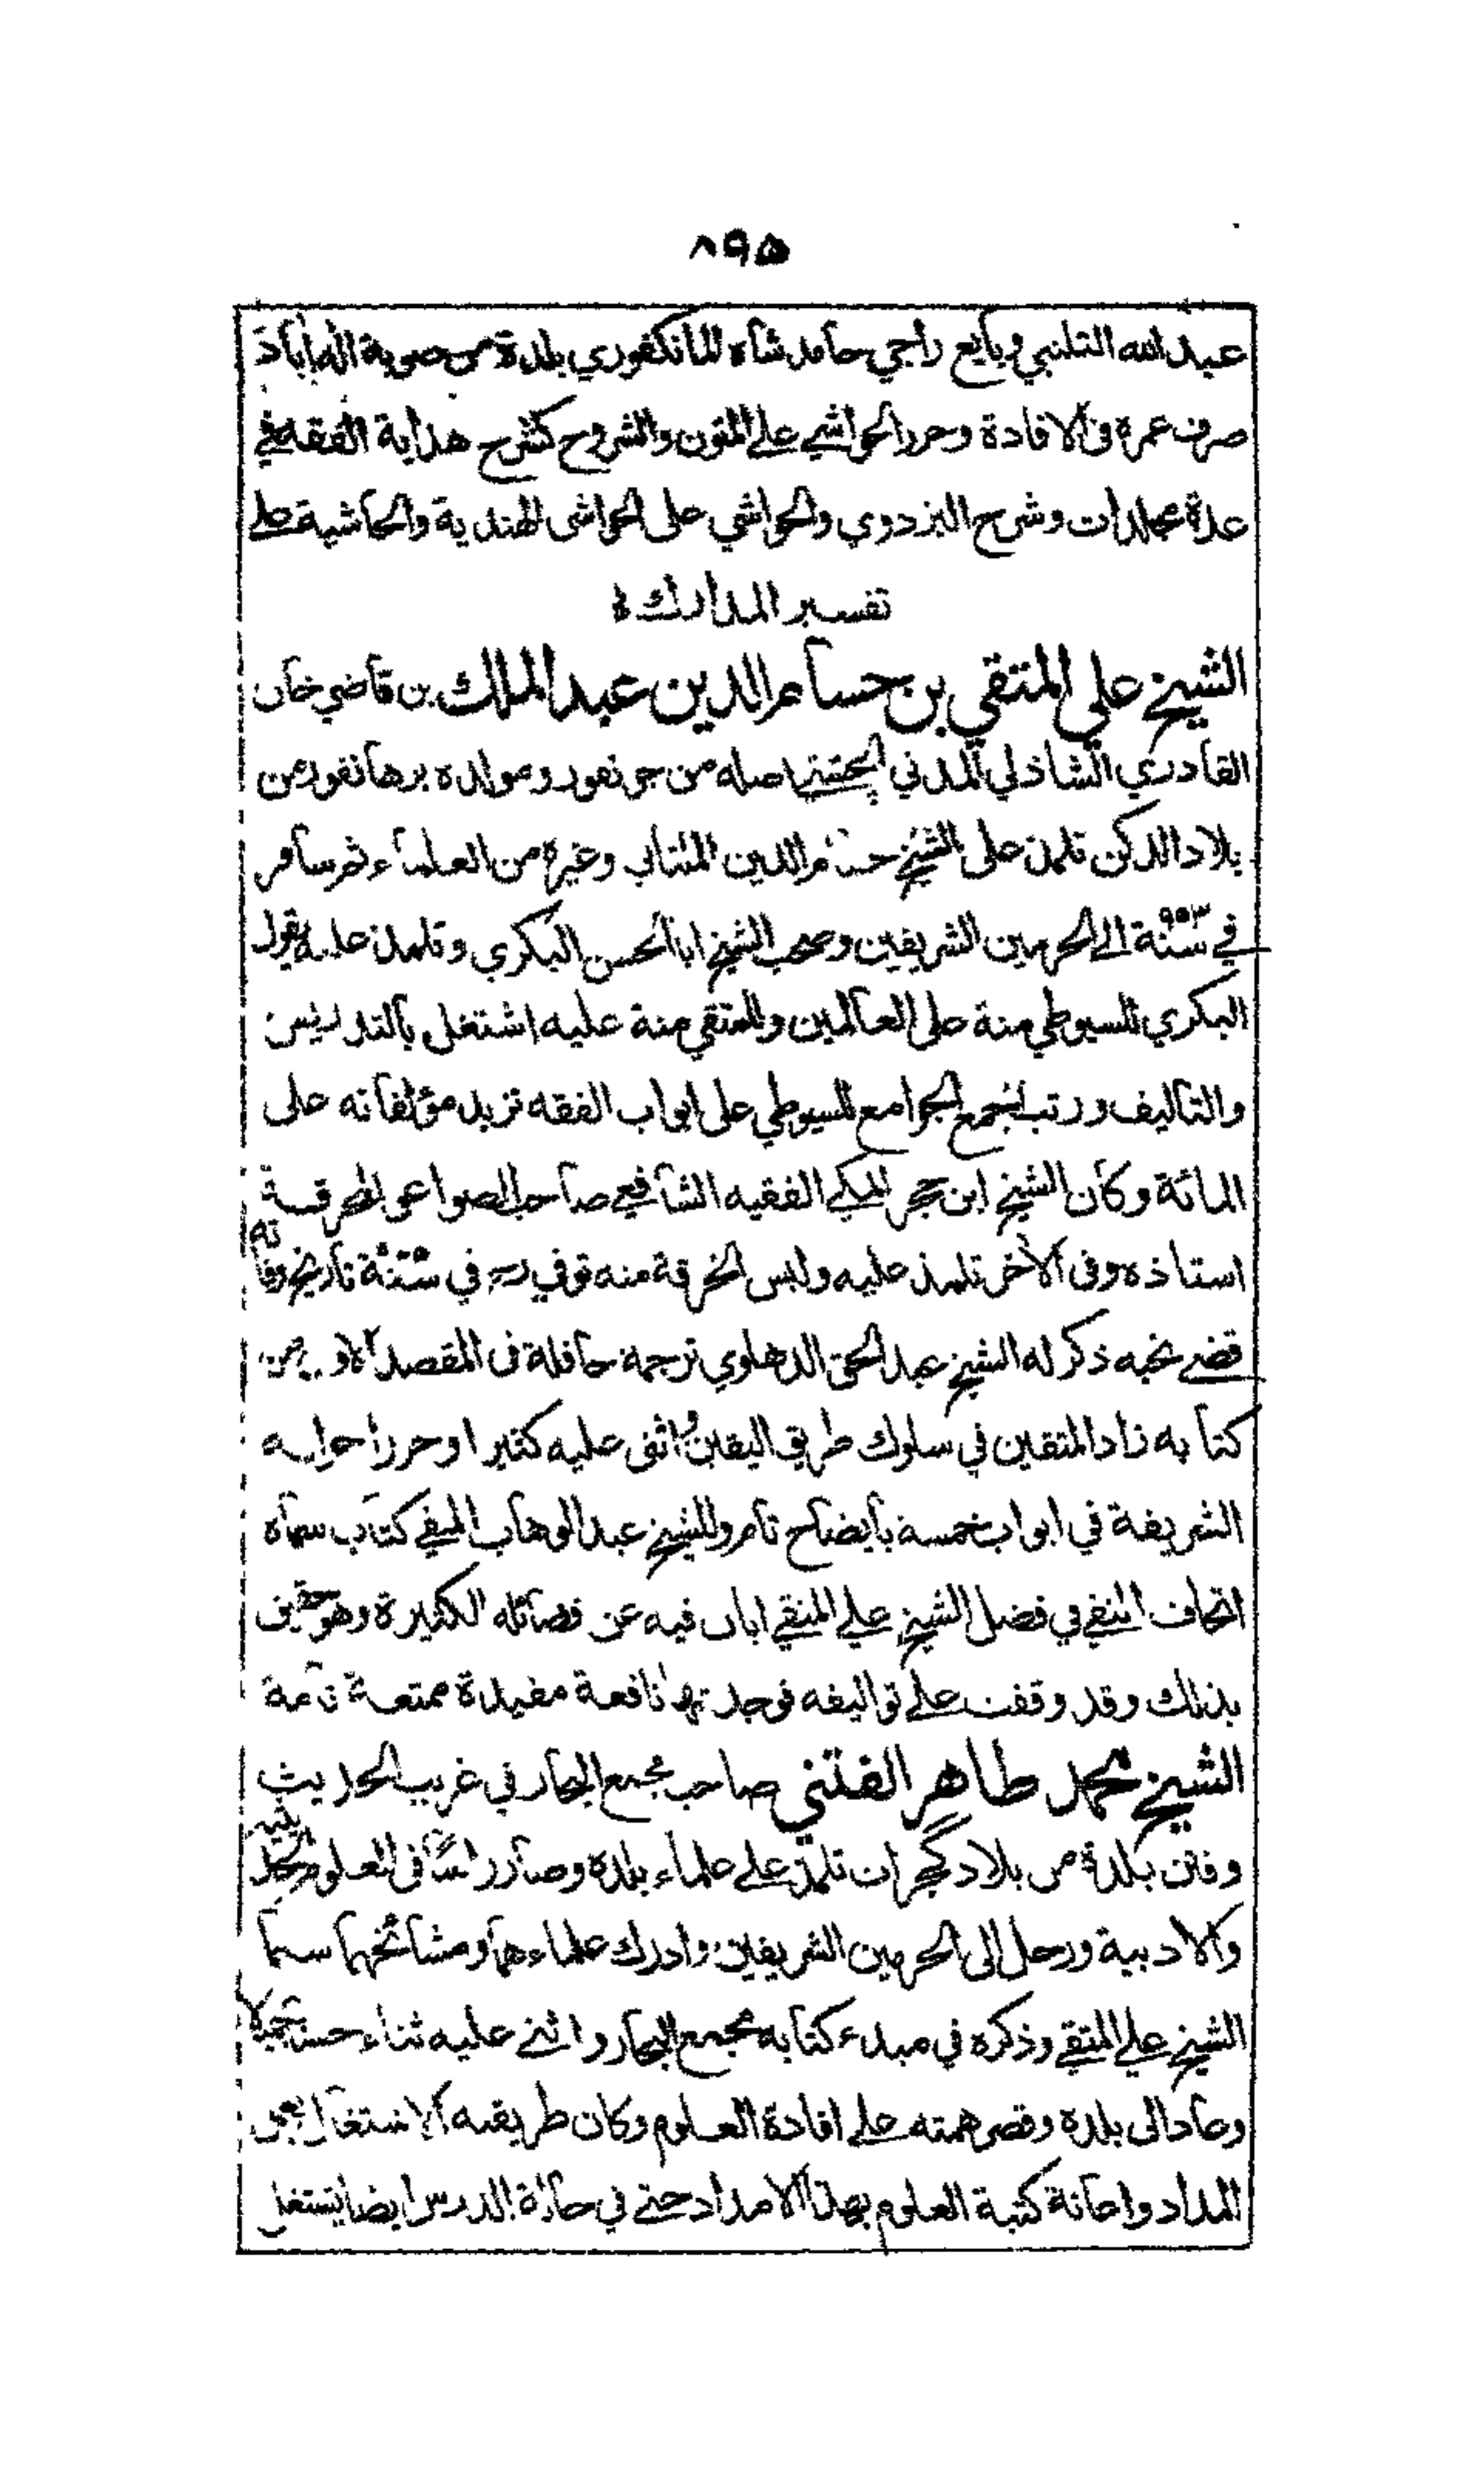 ٨٩٥
عبد الله التلنبي وبايع راجي حامد شاه المانكفوري بلدة من صوبة اله اباد
صرف عمره فى الافادة وحرر الحواشي على المتون والشروح كشرح هداية الفقه في
عدة مجلدات وشرح البزدوي والحواشي على الحواشى الهندية والحاشية على
تفسير المدارك
الشيخ علي المتقي بن حسام الدين عبد الملك بن قاضي خان
القادري الشاذلي المدني الچشتي اصله من جونفور ومولده برهانفور من
بلاد الدكن تلمذ على الشيخ حسام الدين الملتاني وغيره من العلماء ثم سافر
في سنة ٩٥٣ الى الحرمين الشريفين وصحب الشيخ ابا الحسن البكري وتلمذ عليه يقول
البكري للسيوطي منة على العالمين وللمتقي منة عليه اشتغل بالتدريس
والتاليف ورتب جمع الجوامع للسيوطي على ابواب الفقه تزيد مؤلفاته على
المائة وكان الشيخ ابن حجر المكي الفقيه الشافعي صاحب الصواعق المحرقة
استاذه وفى الآخر تلمذ عليه ولبس الخرقة منه توفي رح في سنة تاريخ وفاته
قضى نحبه ذكر له الشيخ عبد الحق الدهلوي ترجمة حافلة فى المقصد الاول من
كتابه زاد المتقين في سلوك طريق اليقين واثنى عليه كثيرا وحرر احواله
الشريفة في ابواب خمسة بايضاح تام وللشيخ عبد الوهاب المتقي كتاب سماه
اتحاف المتقي في فضل الشيخ علي المتقي ابان فيه عن فضائله الكثيرة وهو حقيق
بذلك وقد وقفت على تواليفه فوجدتها نافعة مفيدة ممتعة تامة
الشيخ محمد طاهر الفتني صاحب مجمع البحار في غريب الحديث
وفتن بلدة من بلاد گجرات تلمذ على علماء بلده وصار راسا فى العلوم الحديثية
والادبية ورحل الى الحرمين الشريفين وادرك علماءهما ومشائخهما سيما
الشيخ علي المتقي وذكره في مبدء كتابه مجمع البحار واثنى عليه ثناء حسنا جميلا
وعاد الى بلده وقصر همته على افادة العلوم وكان طريقه الاشتغال بعمل
المداد واعانة كتبة العلوم بهذا الامداد حتى في حالة الدرس ايضا يشتغل